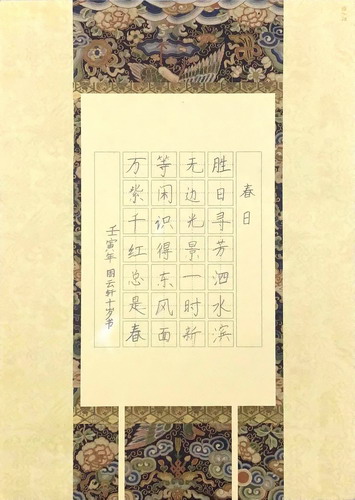 春日
胜日寻芳泗水滨
无边光景一时新
等闲识得东风面
万紫千红总是春
壬寅年 周云轩十岁书